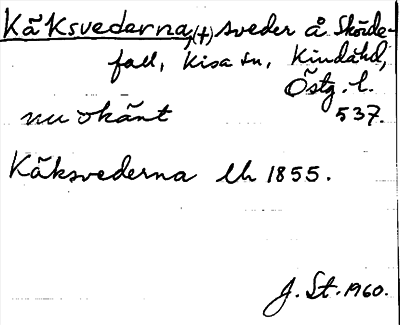 Käksvederna, (+) sveder å Skörde-
fall, Kisa sn, Kindahd,
Östg. l.
nu okänt 537.
Käksvederna Lh 1855.
J. St. 1960.